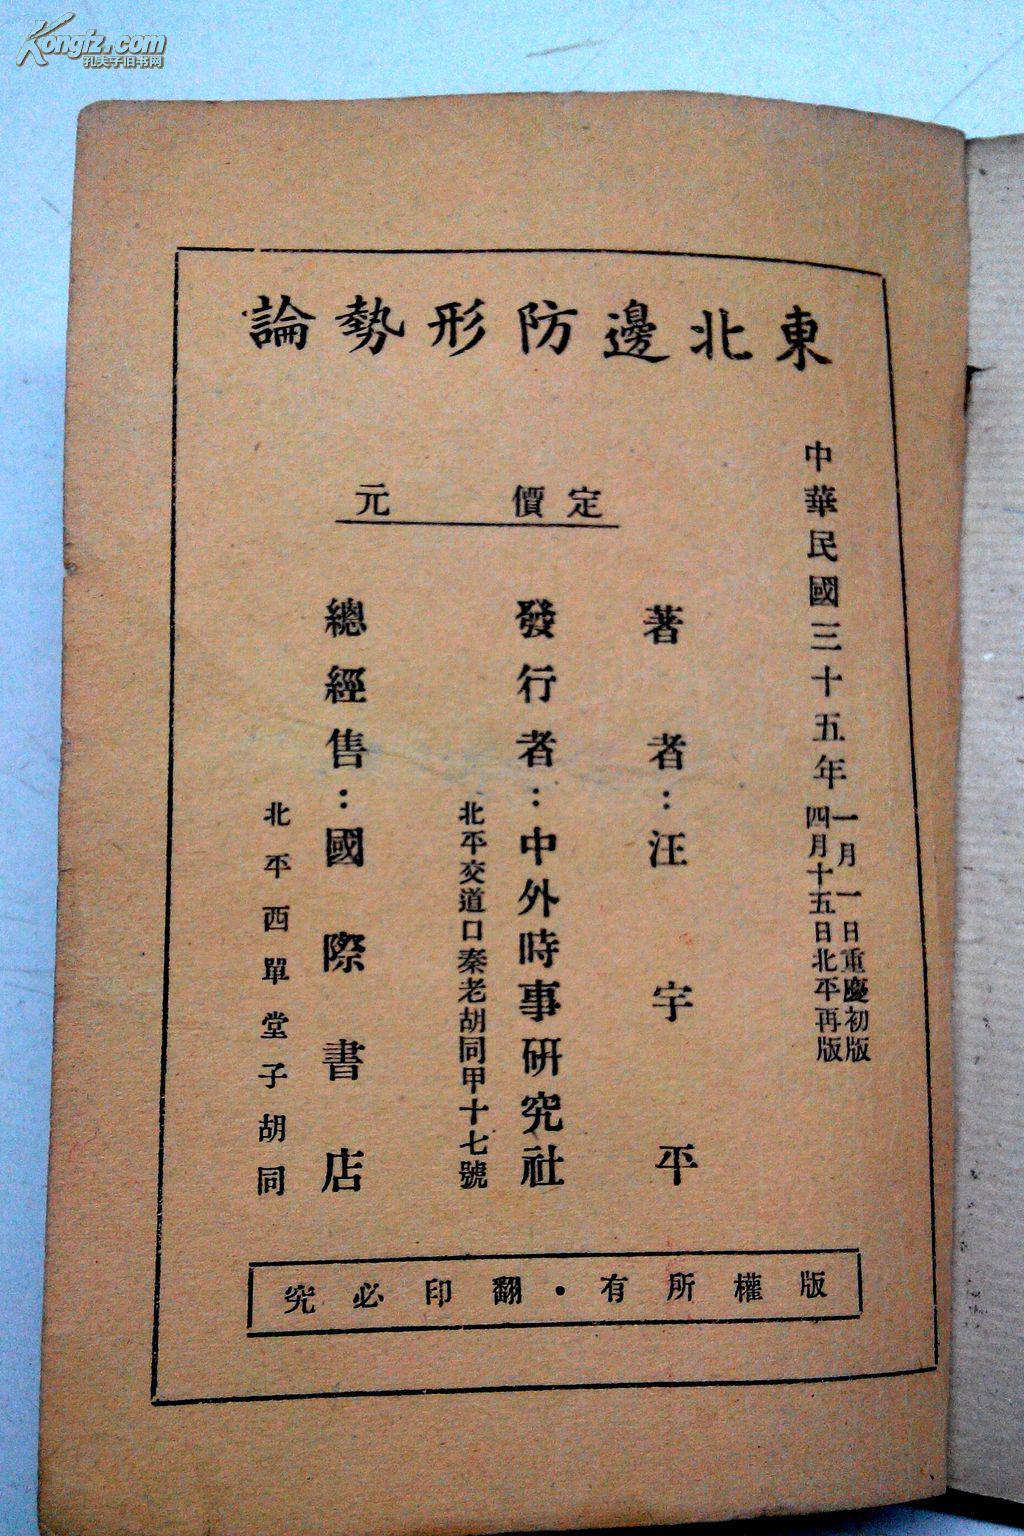 Kongfz.com
孔夫子旧书网
東北邊防形勢論
中華民國三十五年
一月一日重慶初版
四月十五日北平再版
定價 元
著者：汪宇平
發行者：中外時事研究社
北平交道口秦老胡同甲十七號
總經售：國際書店
北平西單堂子胡同
版權所有・翻印必究